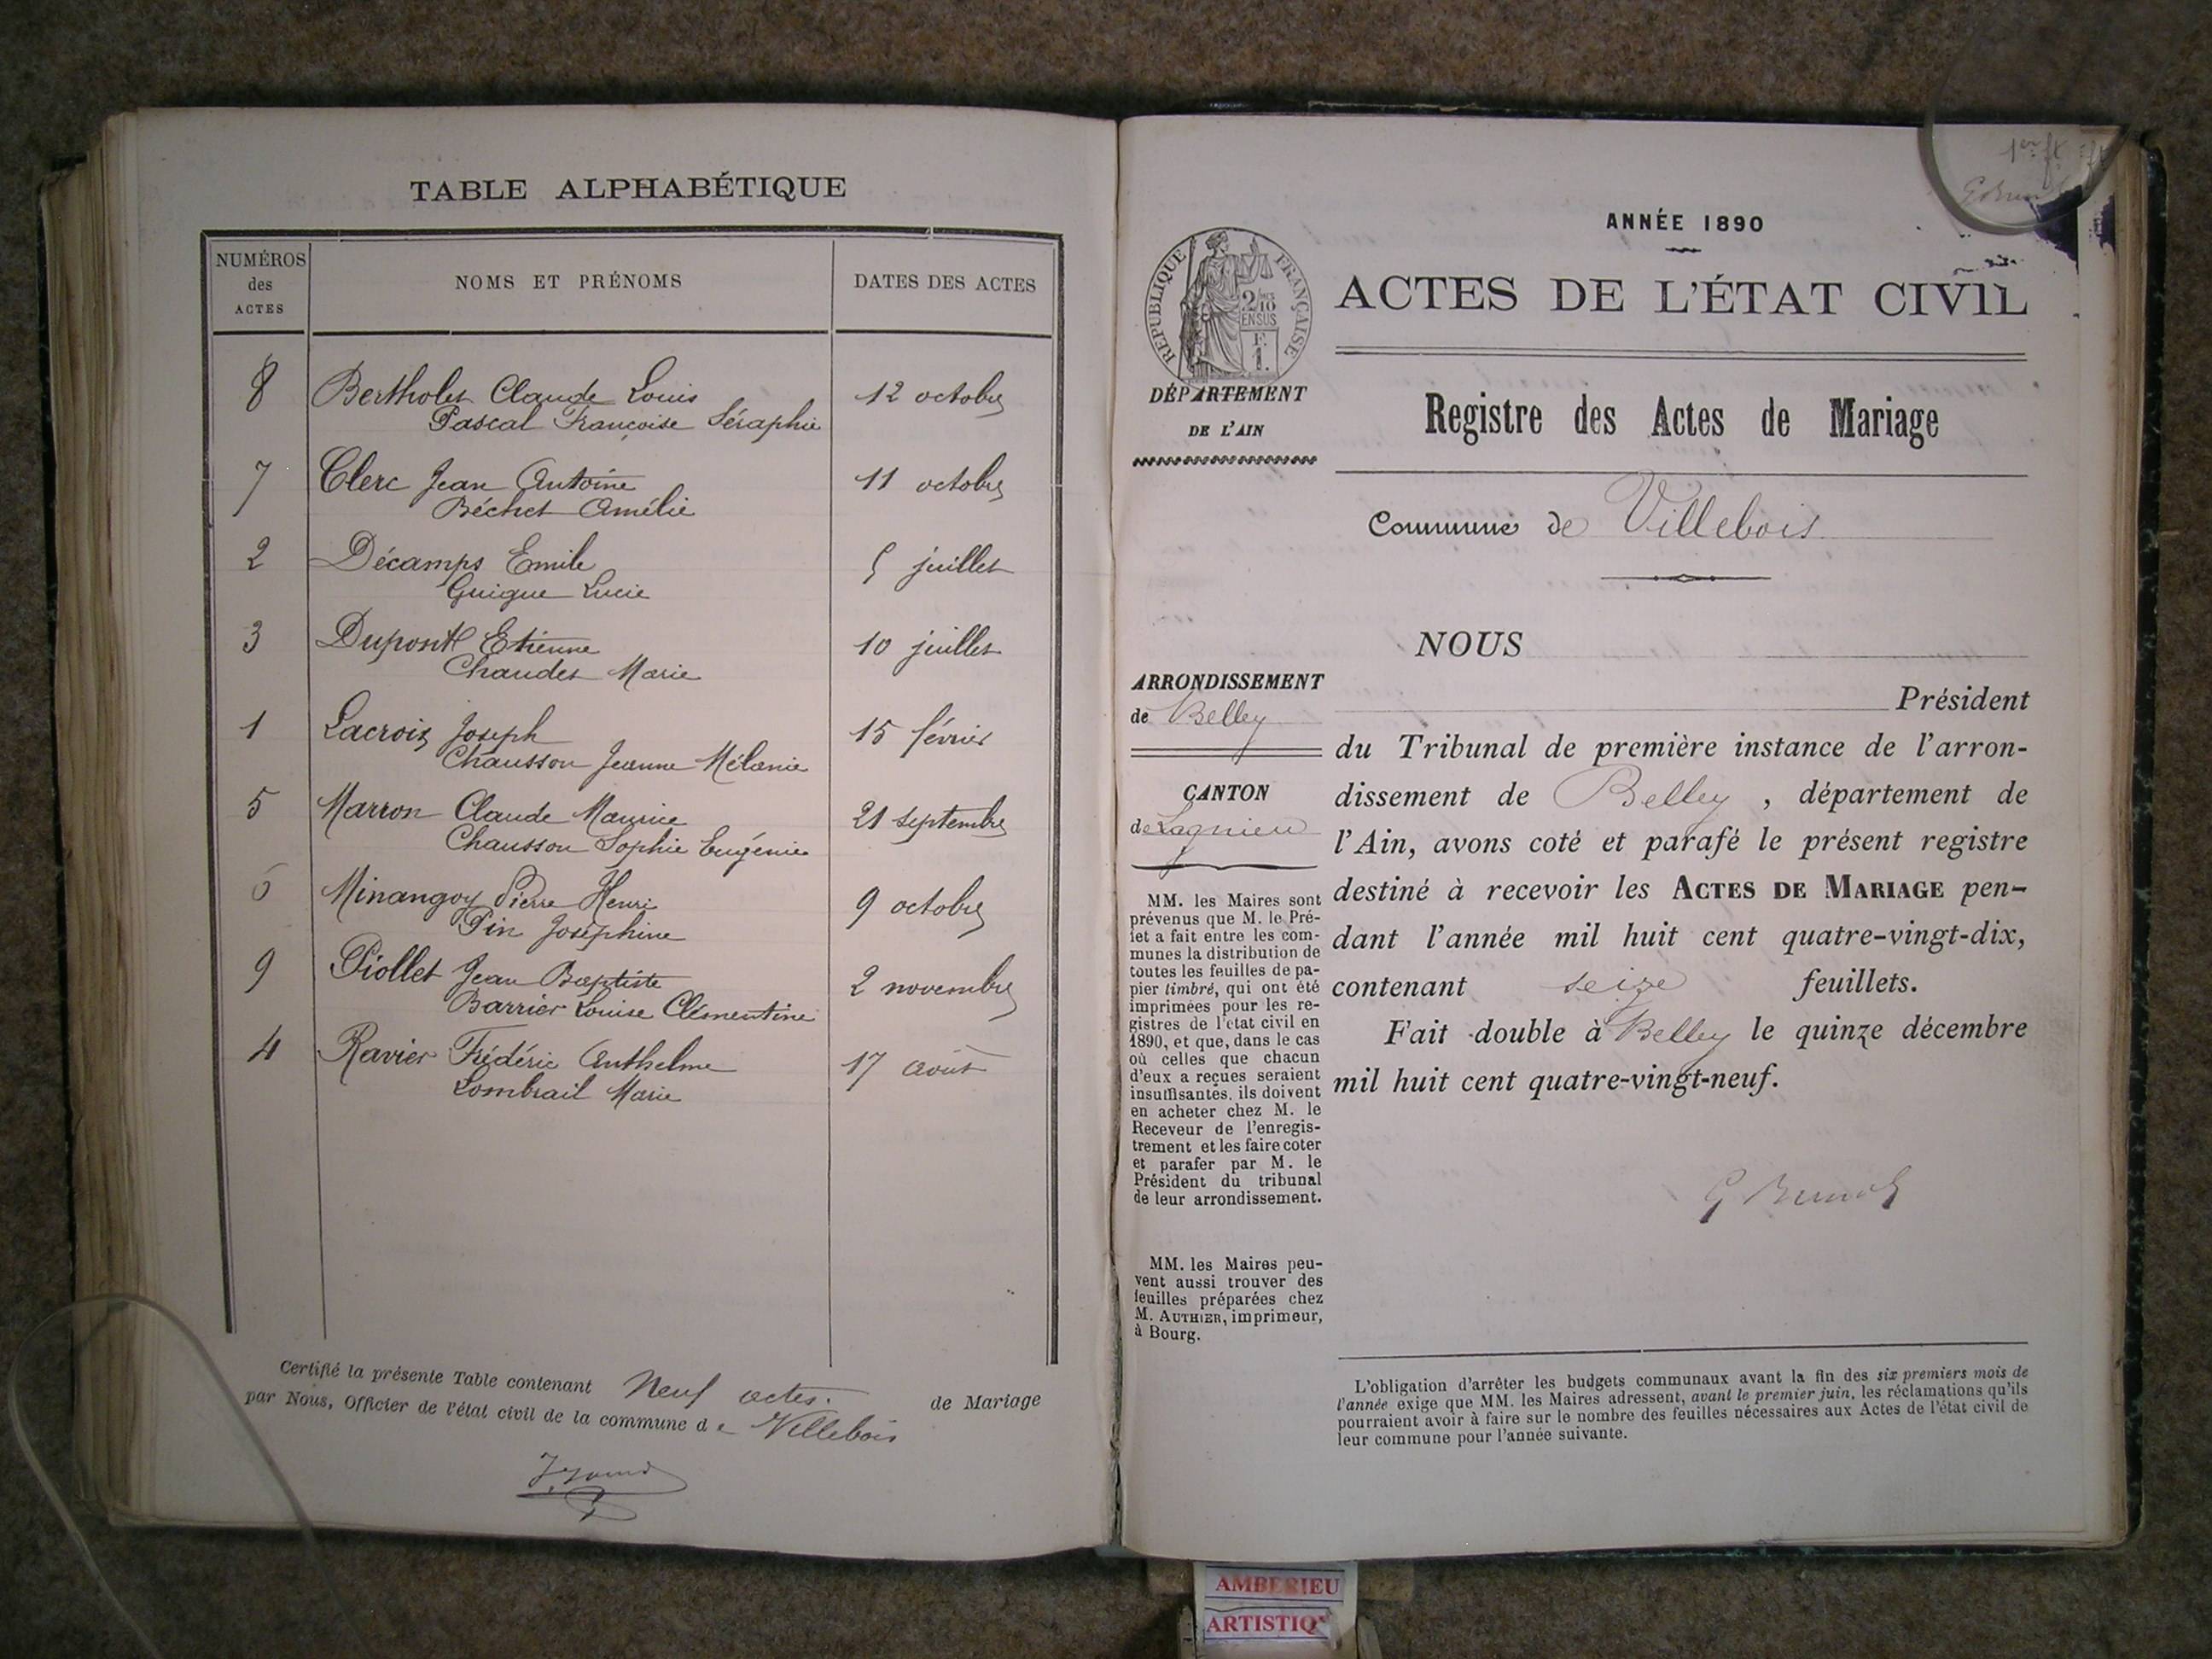 TABLE ALPHABÉTIQUE
NUMÉROS
des
ACTES
NOMS ET PRÉNOMS
DATES DES ACTES
8 Bertholet Claude Louis 12 octobre
Pascal Françoise Séraphie
7 Clerc Jean Antoine 11 octobre
Béchet Amélie
2 Décamps Emile 5 juillet
Guigue Lucie
3 Dupont Etienne 10 juillet
Chaudet Marie
1 Lacroix Joseph 15 février
Chausson Jeanne Mélanie
5 Marron Claude Maurice 21 septembre
Chausson Sophie Eugénie
6 Minangoy Pierre Henri 9 octobre
Pin Joséphine
9 Piollet Jean Baptiste 2 novembre
Barrier Louise Clémentine
4 Ravier Frédéric Anthelme 17 août
Lombrail Marie
Certifié la présente Table contenant Neuf actes. de Mariage
par Nous, Officier de l'état civil de la commune de Villebois
1er ft
ANNÉE 1890
RÉPUBLIQUE FRANÇAISE
2/10
EN SUS
F.
1.
ACTES DE L'ÉTAT CIVIL
DÉPARTEMENT
DE L'AIN
Registre des Actes de Mariage
Commune de Villebois
NOUS
ARRONDISSEMENT
de Belley
CANTON
de Lagnieu
MM. les Maires sont
prévenus que M. le Pré-
fet a fait entre les com-
munes la distribution de
toutes les feuilles de pa-
pier timbré, qui ont été
imprimées pour les re-
gistres de l'état civil en
1890, et que, dans le cas
où celles que chacun
d'eux a reçues seraient
insuffisantes, ils doivent
en acheter chez M. le
Receveur de l'enregis-
trement et les faire coter
et parafer par M. le
Président du tribunal
de leur arrondissement.
MM. les Maires peu-
vent aussi trouver des
feuilles préparées chez
M. AUTHIER, imprimeur,
à Bourg.
Président
du Tribunal de première instance de l'arron-
dissement de Belley, département de
l'Ain, avons coté et parafé le présent registre
destiné à recevoir les ACTES DE MARIAGE pen-
dant l'année mil huit cent quatre-vingt-dix,
contenant seize feuillets.
Fait double à Belley le quinze décembre
mil huit cent quatre-vingt-neuf.
L'obligation d'arrêter les budgets communaux avant la fin des six premiers mois de
l'année exige que MM. les Maires adressent, avant le premier juin, les réclamations qu'ils
pourraient avoir à faire sur le nombre des feuilles nécessaires aux Actes de l'état civil de
leur commune pour l'année suivante.
AMBERIEU
ARTISTIQ